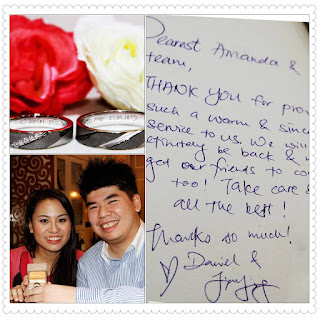 Dearest Amanda &
team,
THANK YOU for pro
such a warm & since
service to us. We will
efinitely be back &
get our friends to co
too! Take care &
all the best!
Thanks so much!
Daniel &